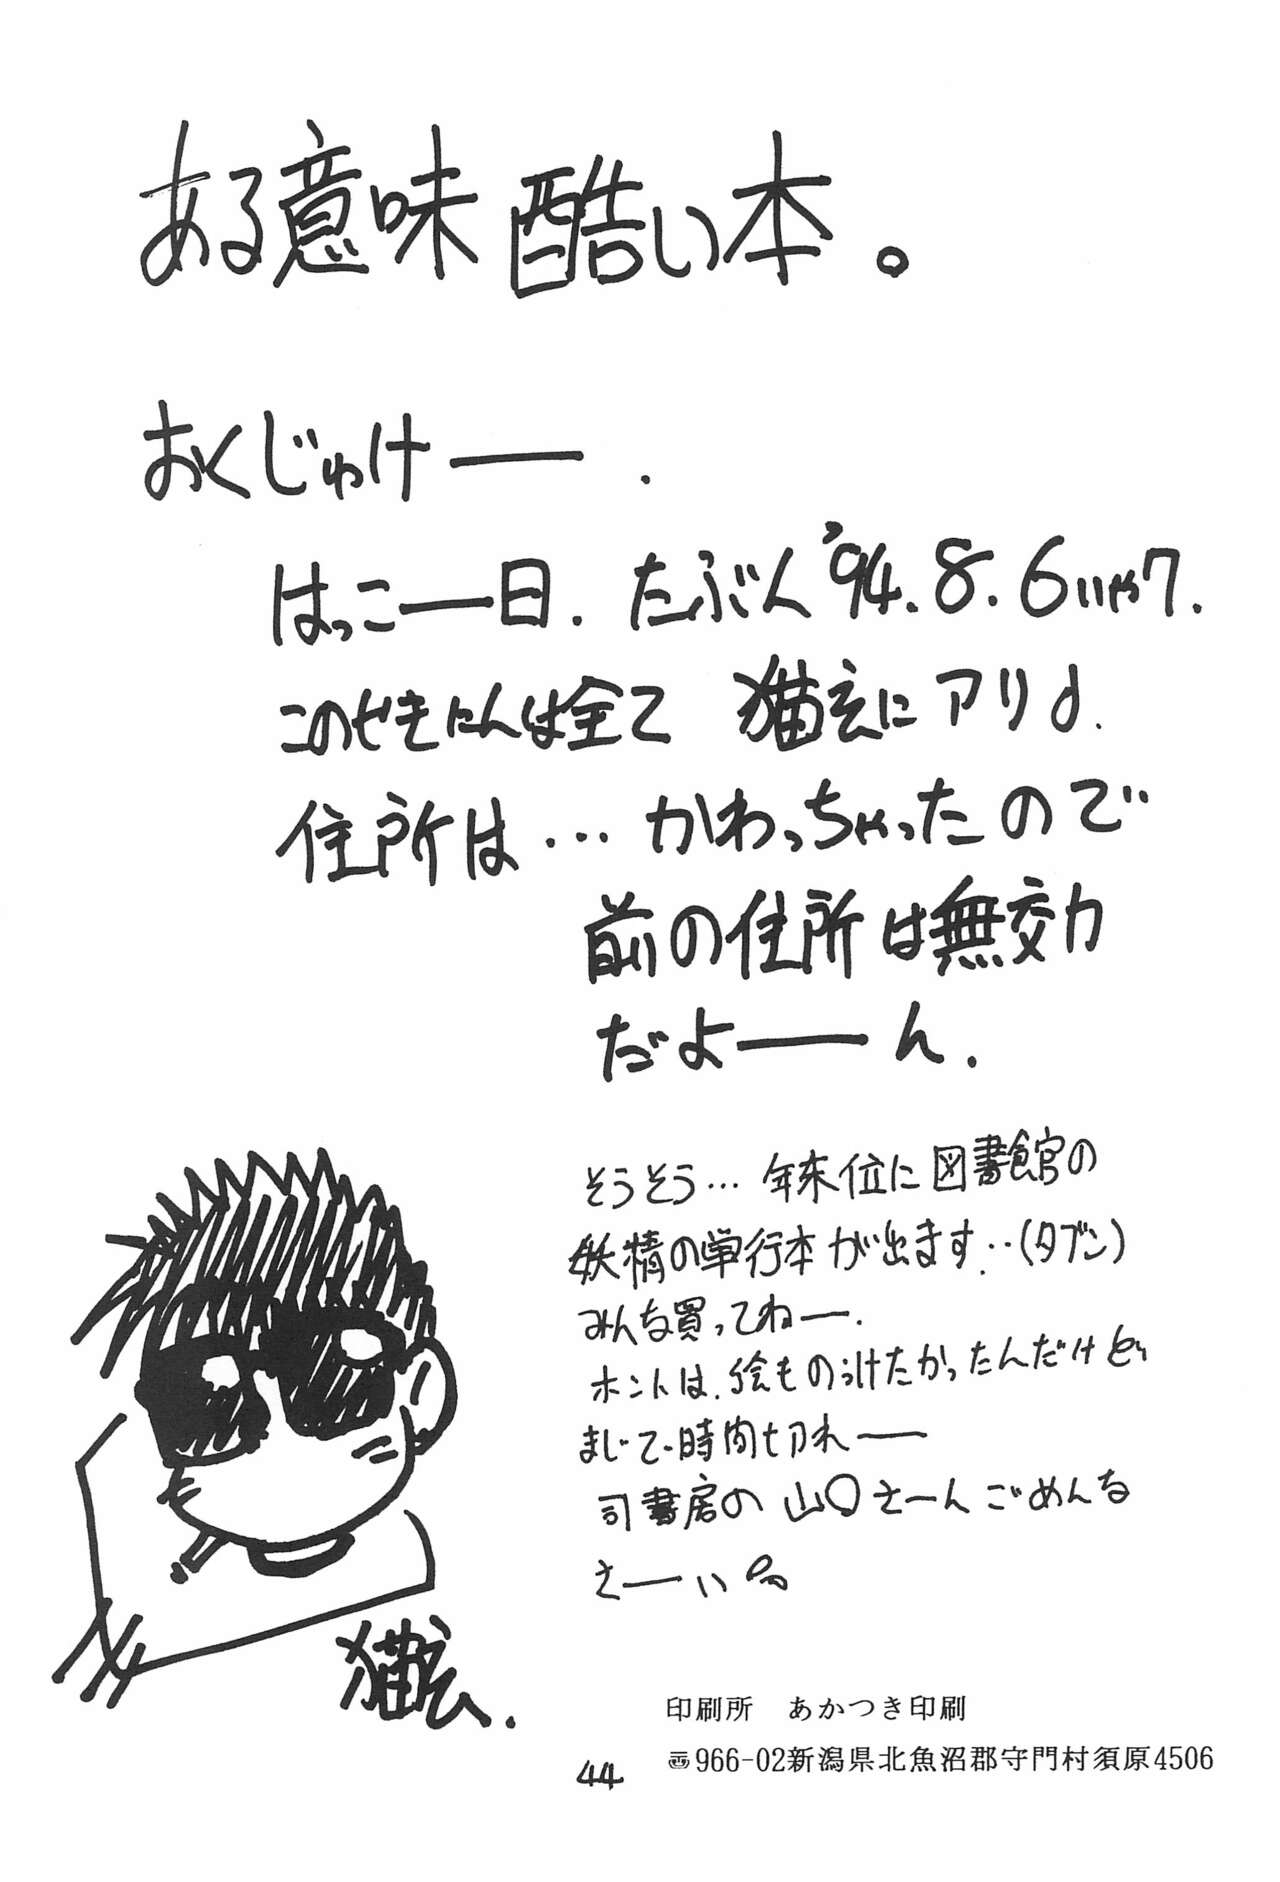 ある意味酷い本。
おくじゅけー.
はっこー日.たぶん'94.8.6いや7.
このせきにんは全て 猫玄にアリ♪.
住所は…かわっちゃったので
前の住所は無交力
だよーん.
そうそう…年末位に図書館の
妖精の単行本が出ます‥(タブン)
みんな買ってねー.
ホントは、絵もの
まじで時間切れー
司書房の山○さーんごめんな
さーい
猫玄.
印刷所 あかつき印刷
〠966-02新潟県北魚沼郡守門村須原4506
44